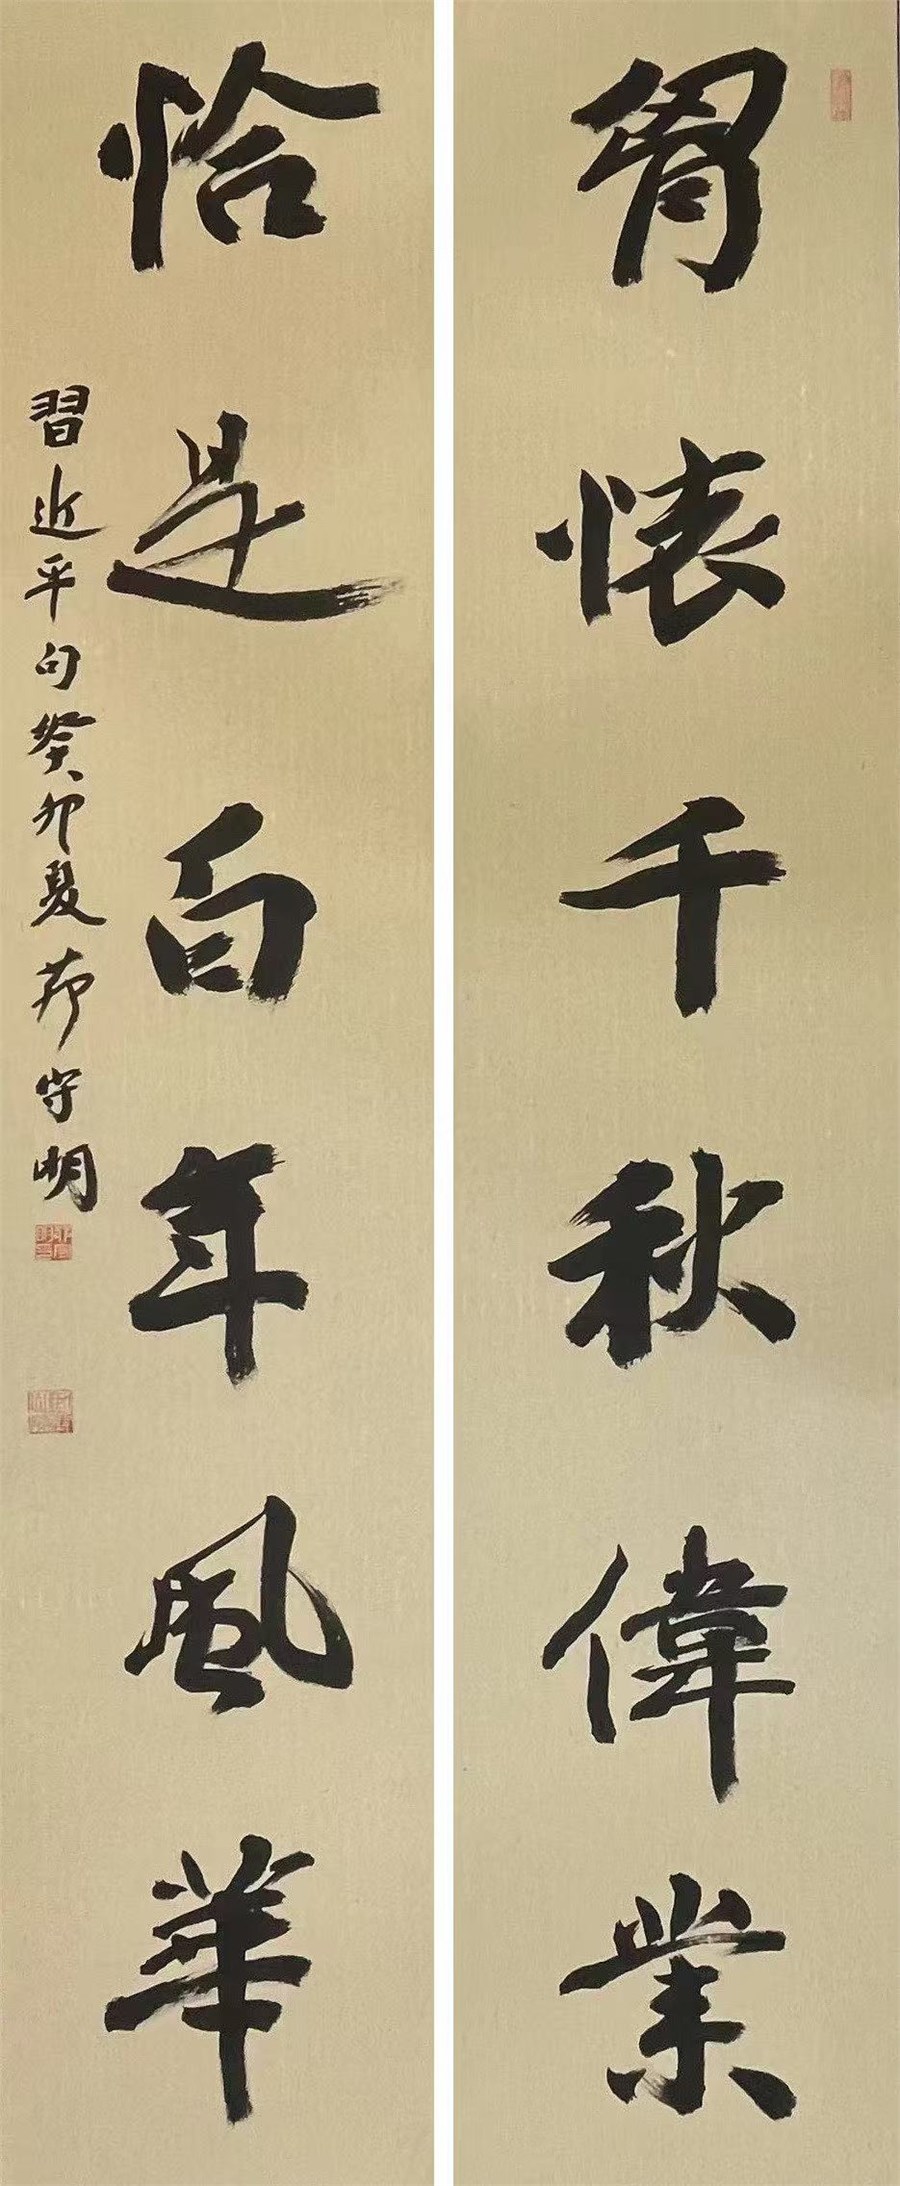 胷懐千秋偉業
恰是百年風華
習近平句癸卯夏茆守明